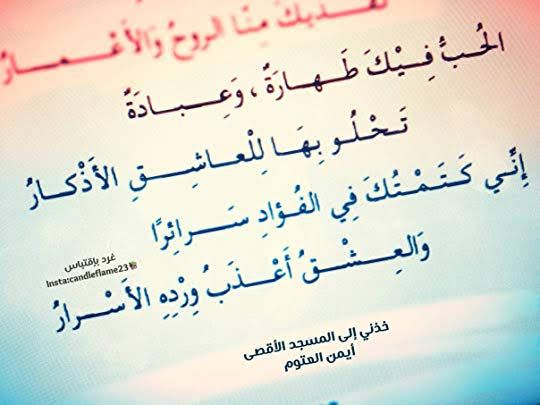 تَفْدِيكَ مِنَّا الروحُ وَالأَعْمَارُ
الحُبُّ فِيْكَ طَهَارَةٌ ، وَعِبَادَةٌ
تَحْلُو بِهَا لِلْعاشِقِ الأَذْكارُ
إِنِّي كَتَمْتُكَ فِي الفُؤادِ سَرائِرًا
وَالعِشْقُ أَعْذَبُ وِرْدِهِ الأَسْرارُ
غرد بإقتباس
Insta:candleflame23
خذني إلى المسجد الأقصى
أيمن العتوم